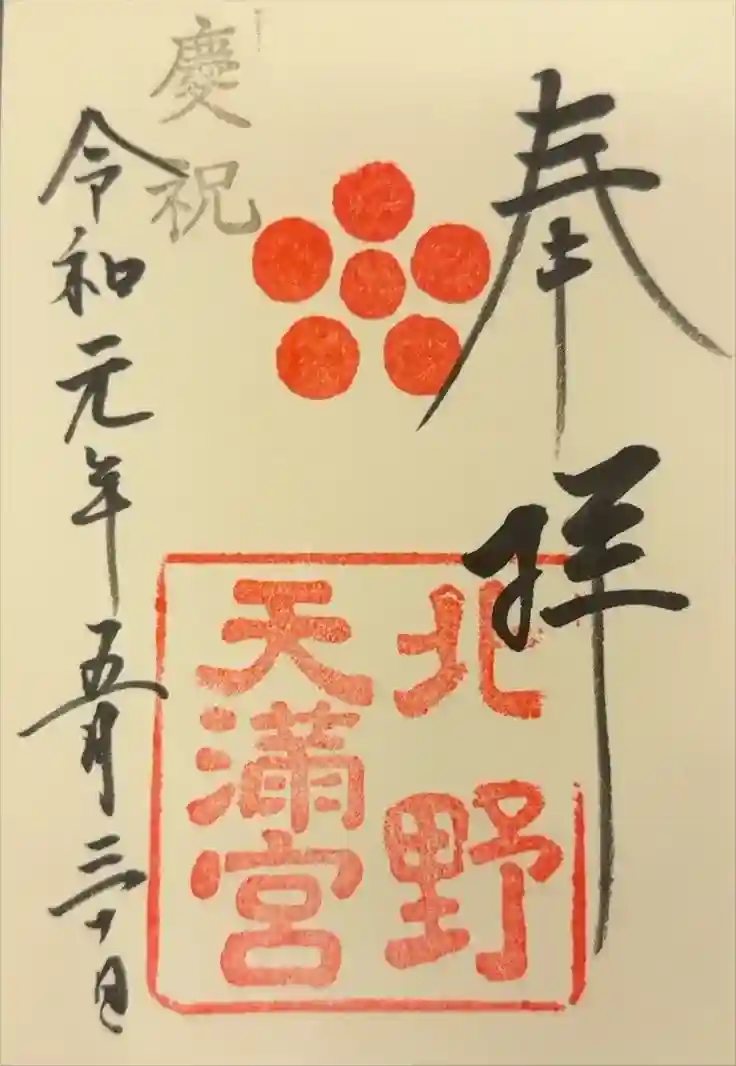 奉拝
北野
天満宮
慶祝
令和元年五月三十日